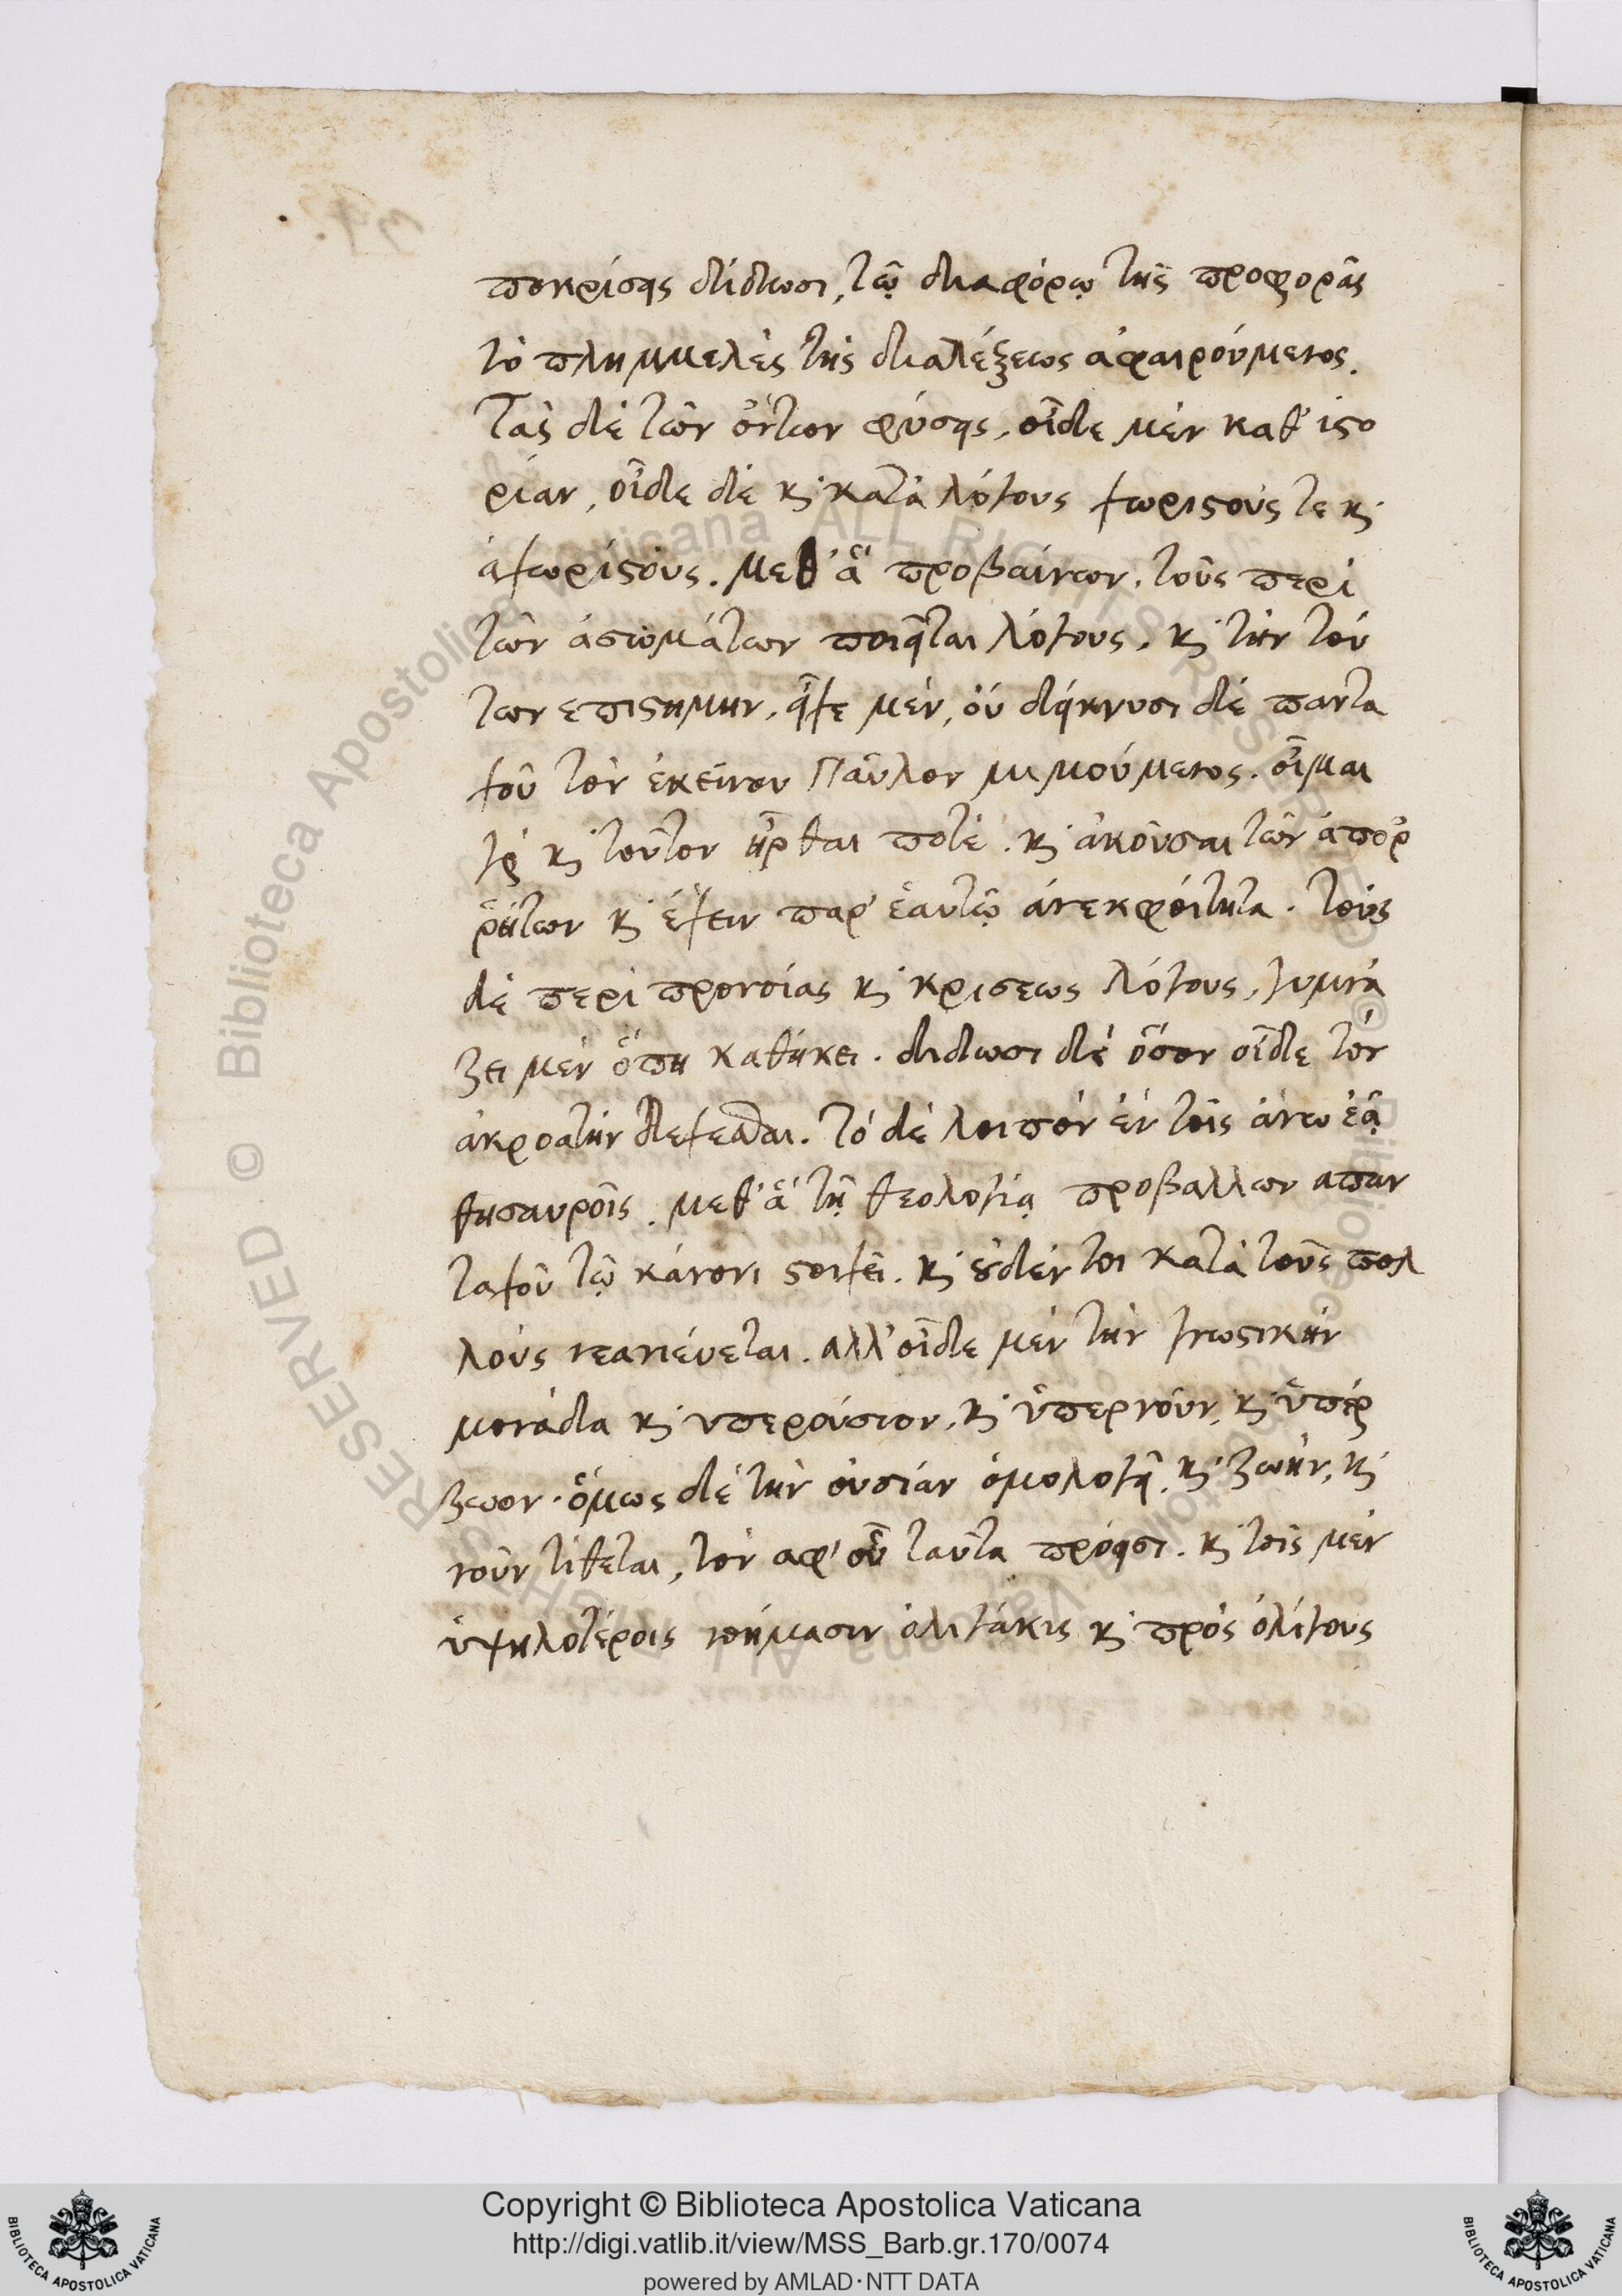 ποκρίσεις δίδωσι, τῶ διαφόρω τῆς προφορᾶς
τὸ πλημμελὲς τῆς διαλέξεως ἀφαιρούμενος.
Τὰς δὲ τῶν ὄντων φύσεις, οἶδε μὲν καθ' ἱστο
ρίαν, οἶδε δὲ κ̀ κατὰ λόγους χωριστούς τε κ̀
ἀχωρίστους. μεθ' ἃ προβαίνων, τοὺς περὶ
τῶν ἀσωμάτων ποιεῖται λόγους, κ̀ τὴν τού
των επιστήμην, εἶχε μὲν, οὐ δείκνυσι δὲ παντα
χοῦ τὸν ἐκεῖνον Παῦλον μιμούμενος. οἶμαι
γὰρ κ̀ τοῦτον ἦρθαι ποτὲ. κ̀ ἀκοῦσαι τῶν ἀποῤ
ῥήτων κ̀ ἔχειν παρ' ἑαυτῶ ἀνεκφοίτητα. τοὺς
δὲ περὶ προνοίας κ̀ κρισεως λόγους, γυμνά
ζει μὲν ὅπη καθήκει. διδωσι δὲ ὅσον οἶδε τὸν
ἀκροατὴν δέχεσθαι. τὸ δὲ λοιπὸν ἐν τοῖς ἄνω ἐᾷ
θησαυροῖς. μεθ' ἃ τῇ θεολογίᾳ προβαλλων απαν
ταχοῦ τῷ κάνονι στοιχεῖ. κ̀ ȣδέν τοι κατὰ τοὺς πολ
λοὺς νεανιέυεται. αλλ' οἶδε μὲν τὴν γνωστικὴν
μονάδα κ̀ υπερούσιον, κ̀ ὑπερνοῦν, κ̀ ὑπέρ
ζωον. ὅμως δὲ τὴν οὐσίαν ὁμολογεῖ, κ̀ ζωὴν, κ̀
νοῦν τίθεται, τὸν αφ' οὗ ταῦτα πρόεισι. κ̀ τοῖς μὲν
ὑψηλοτέροις νοήμασιν ὀλιγάκις κ̀ πρὸς ὀλίγους
Copyright © Biblioteca Apostolica Vaticana
http://digi.vatlib.it/view/MSS_Barb.gr.170/0074
powered by AMLAD·NTT DATA
© Biblioteca Apostolica Vaticana ALL RIGHTS RESERVED
BIBLIOTECA APOSTOLICA VATICANA
BIBLIOTECA APOSTOLICA VATICANA